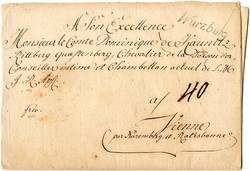 Würzburg
A Son Excellence
Monsieur le Comte Dominique de Kaunitz
Rittberg Questenberg, Chevalier de la Toison d'or
Conseiller intime et Chambellan actuel de S. M.
40
a Vienne
par Nuremberg et Ratisbonne